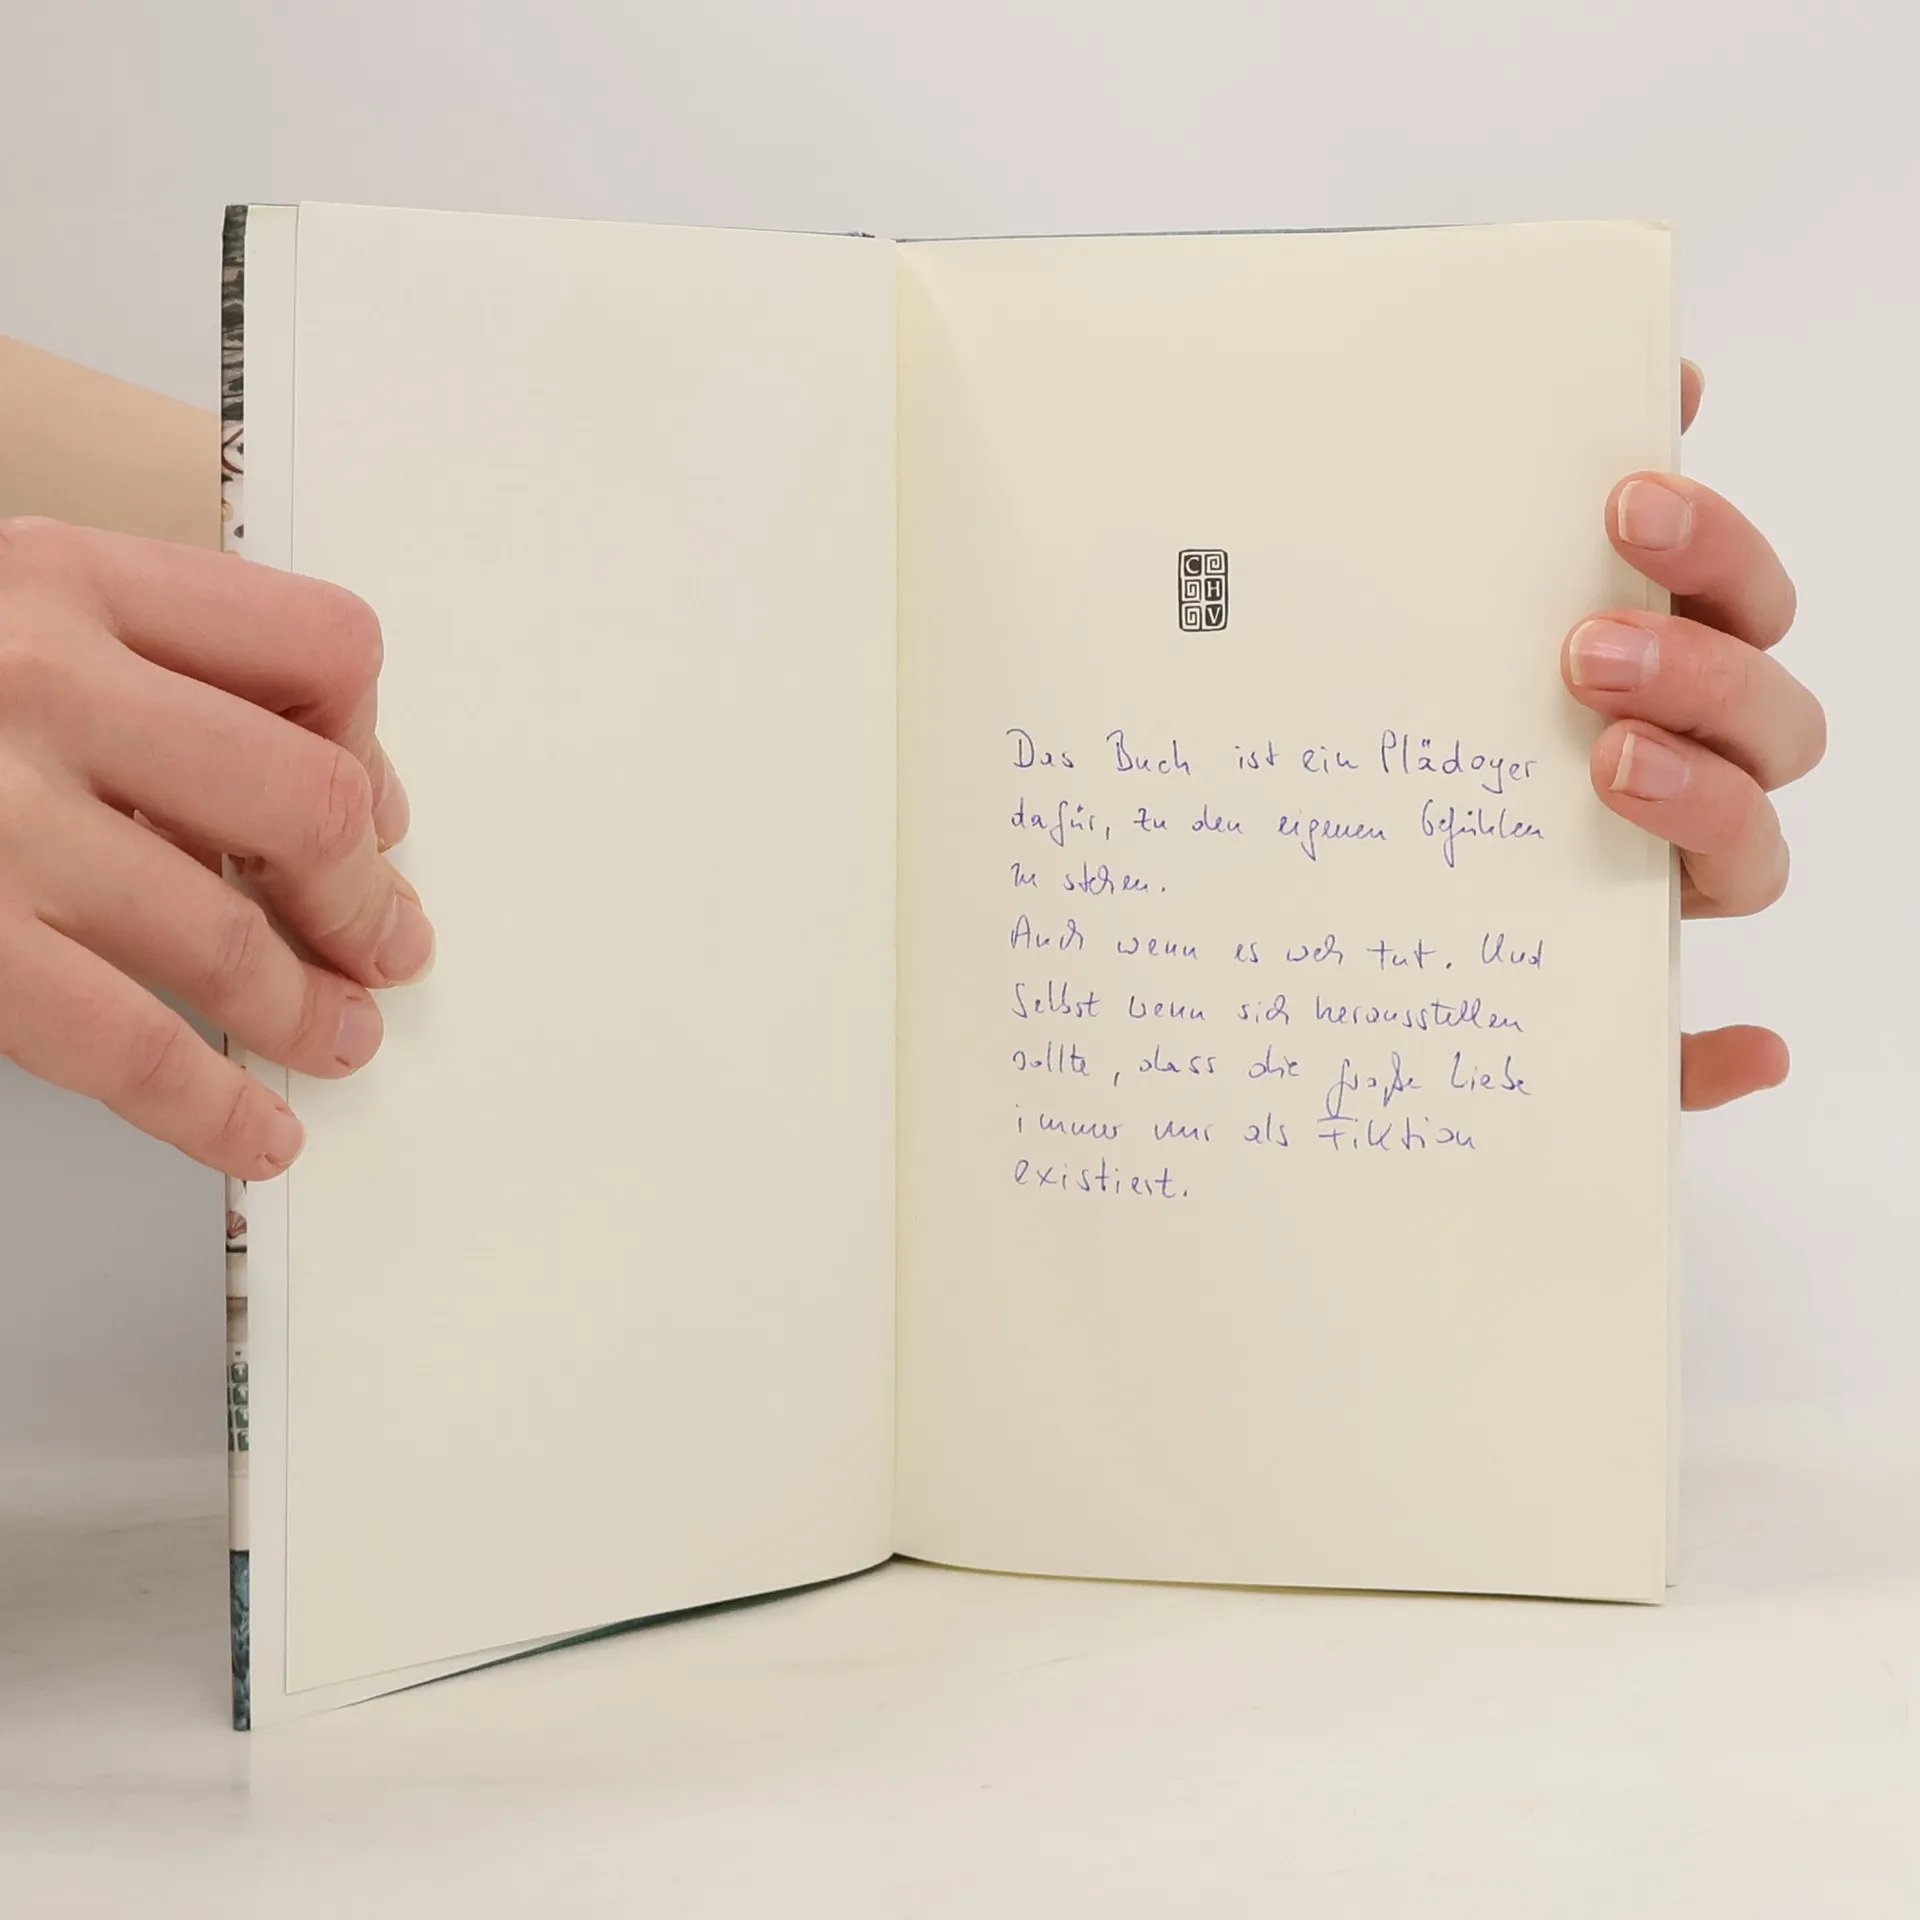 C
H
V
Das Buch ist ein Plädoyer
dafür, zu den eigenen Gefühlen
zu stehen.
Auch wenn es weh tut. Und
selbst wenn sich herausstellen
sollte, dass die große Liebe
immer nur als Fiktion
existiert.